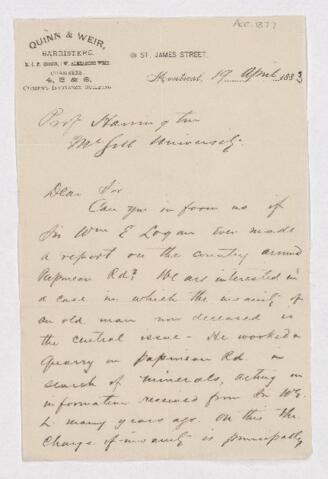 Acc. 1377
QUINN & WEIR,
BARRISTERS.
M. J. F. QUINN, | W. ALEXANDER WEIR.
CHAMBERS
4, 5 & 6,
ST. JAMES STREET,
Montreal, 17 April 1883
Prof Harrington
McGill University.
Dear Sir
Can you inform us if
Sir Wm E Logan ever made
a report on the country around
Papineau Rd? We are interested in
a case in which the insanity of
an old man now deceased is
the central issue - He worked a
quarry on Papineau Rd in
search of minerals, acting on
information received from Sir Wm
L. many years ago. On this the
charge of insanity is principally